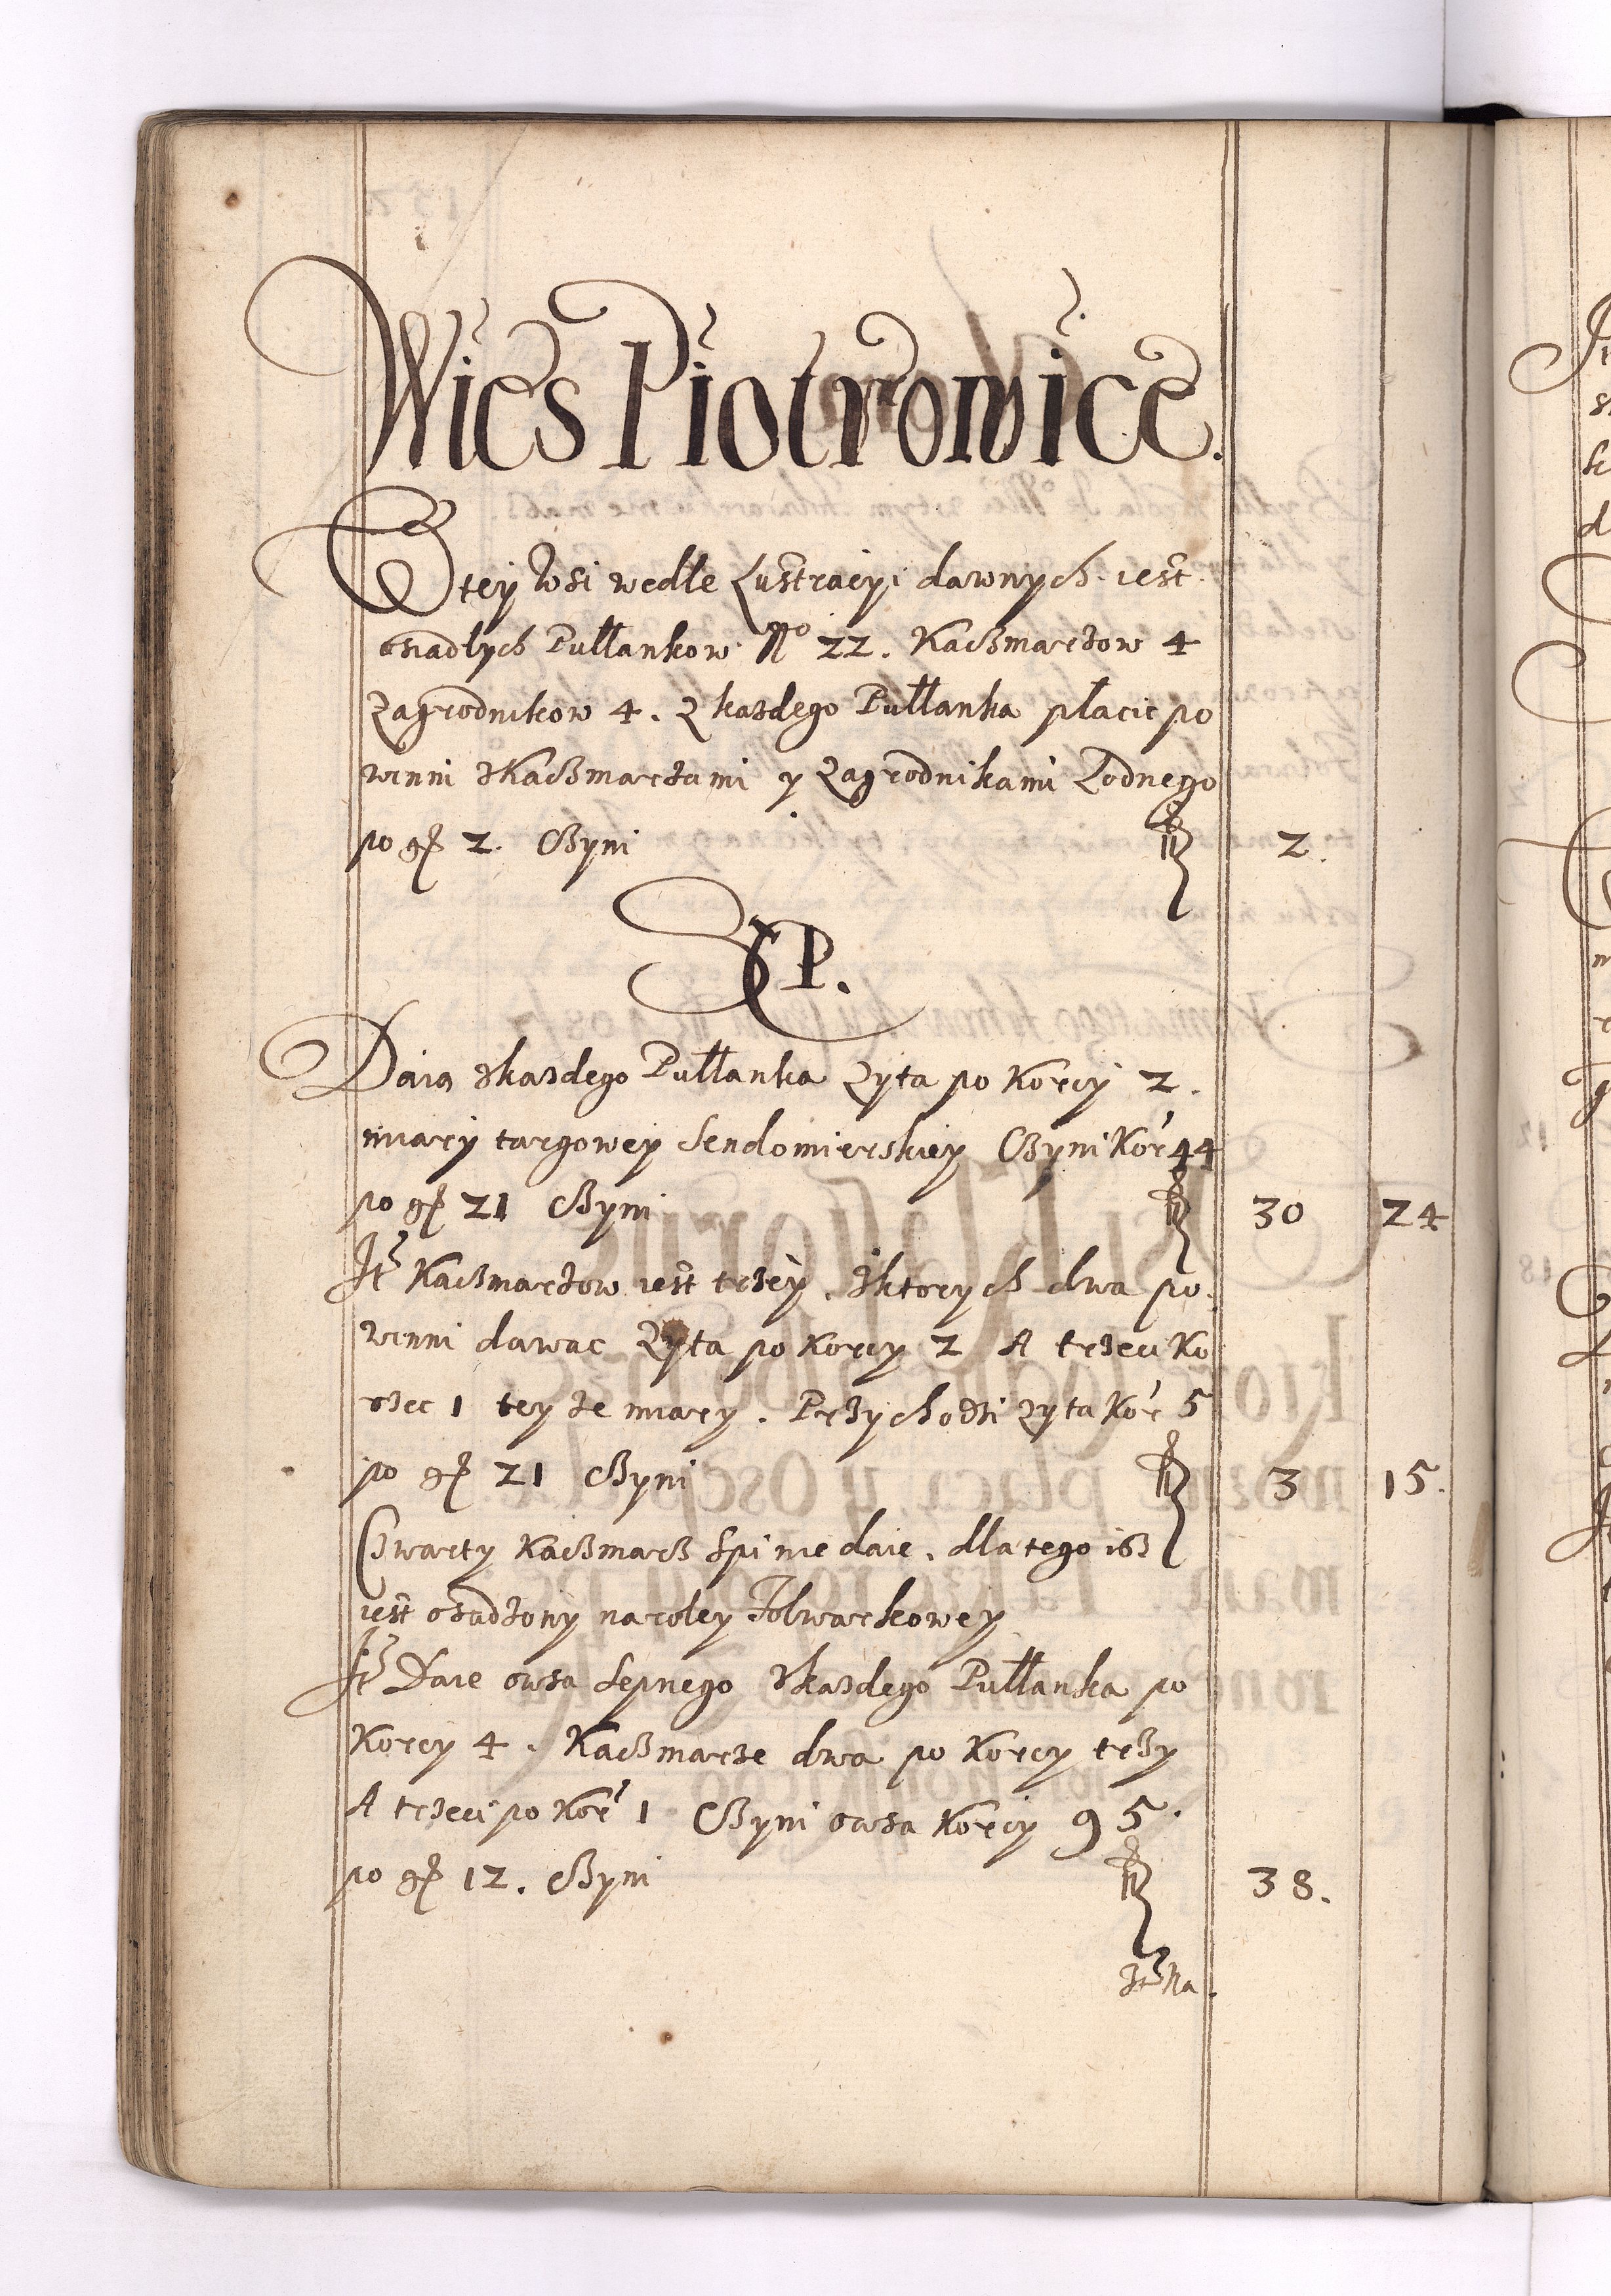 Wies Piotrowice.
W tey Wsi wedle Lustracyi dawnych iest
osiadłych Pułłankow No 22. Kaczmarzow 4
Zagrodnikow 4. Z kazdego Pułłanka płacic po
winni zKaczmarzami y Zagrodnikami Rodnego
po gr 2. Czyni fl 2.
SEP.
Daią zkazdego Pułłanka Zyta po Korcy 2.
miary targowey Sendomierskiey Czyni Kor 44
po gr 21 Czyni fl 30 24
It Kaczmarzow iest trzey. Zktorych dwa po
winni dawac Zyta po Korcy 2 A trzeci Ko
rzec 1 tey ze miary. Przychodzi Zyta Kor 5
po gr 21 Czyni fl 3 15.
Czwarty Kaczmarz Spi nie daie. dla tego isz
iest osadzony na roley Folwarkowey
It Daie owsa Sepnego Zkazdego Pułłanka po
Korcy 4. Kaczmarze dwa po Korcy trzy
A trzeci po Kor 1 Czyni owsa Korcy 95.
po gr 12. Czyni fl 38.